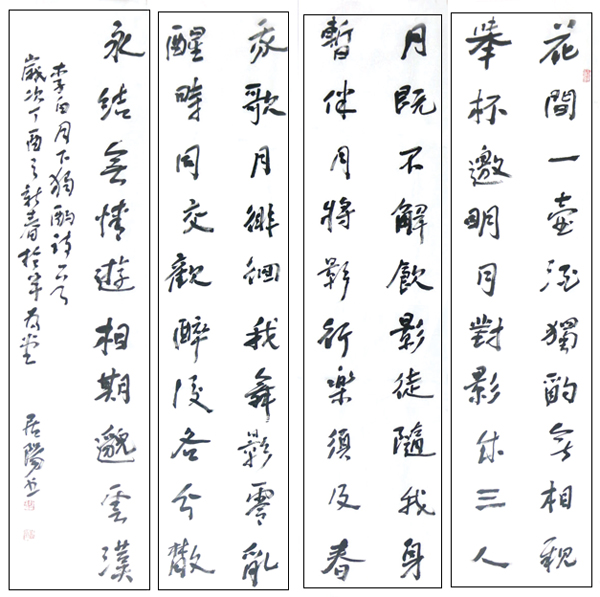 花間一壺酒獨酌無相親
舉杯邀明月對影成三人
月既不解飲影徒隨我身
暫伴月將影行樂須及春
我歌月徘徊我舞影零亂
醒時同交歡醉後各分散
永結無情遊相期邈雲漢
李白月下獨酌詩一首
歲次丁酉之新春於半